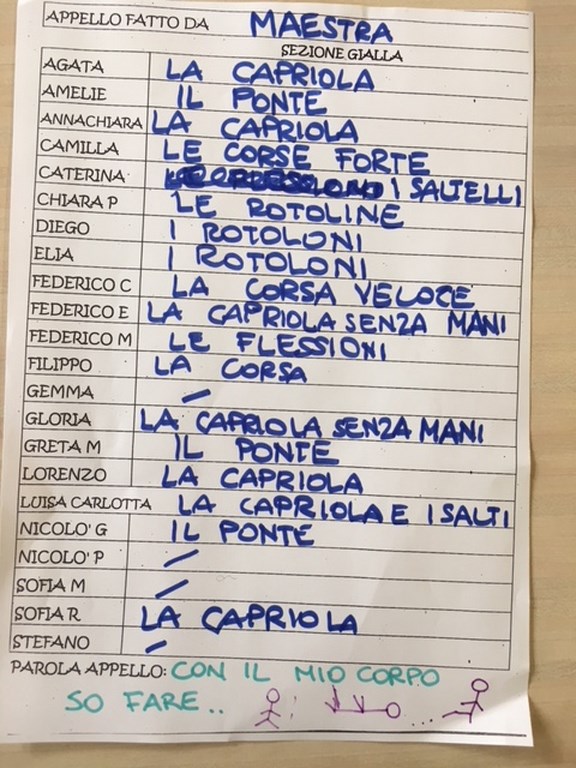 APPELLO FATTO DA MAESTRA
SEZIONE GIALLA
AGATA LA CAPRIOLA
AMELIE IL PONTE
ANNACHIARA LA CAPRIOLA
CAMILLA LE CORSE FORTE
CATERINA I SALTELLI
CHIARA P LE ROTOLINE
DIEGO I ROTOLONI
ELIA I ROTOLONI
FEDERICO C LA CORSA VELOCE
FEDERICO E LA CAPRIOLA SENZA MANI
FEDERICO M LE FLESSIONI
FILIPPO LA CORSA
GEMMA /
GLORIA LA CAPRIOLA SENZA MANI
GRETA M IL PONTE
LORENZO LA CAPRIOLA
LUISA CARLOTTA LA CAPRIOLA E I SALTI
NICOLO' G IL PONTE
NICOLO' P /
SOFIA M /
SOFIA R LA CAPRIOLA
STEFANO /
PAROLA APPELLO: CON IL MIO CORPO
SO FARE.. ...